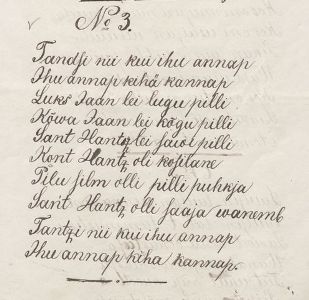 No 3.
Tandsi nii kui ihu annap
Ihu annap kihä kannap
Luks Jaan lei lugu pilli
Kõwa Jaan lei kõgu pilli
Sant Hants lei sawi pilli
Kont Hants oli kosilane
Pilu silm olli pilli puhkja
Sant Hants olli saaja wanemb
Tantsi nii kui ihu annap
Ihu annap kiha kannap.